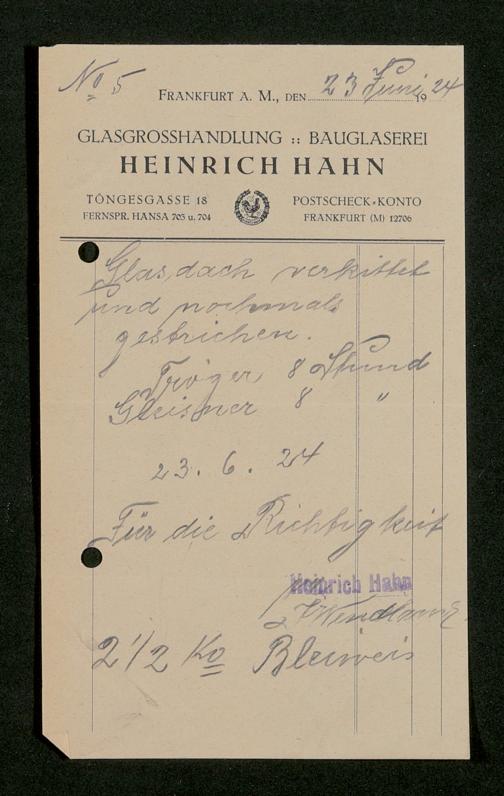 No 5
FRANKFURT A. M., DEN 23 Juni 1924
GLASGROSSHANDLUNG :: BAUGLASEREI
HEINRICH HAHN
TÖNGESGASSE 18 POSTSCHECK-KONTO
FERNSPR. HANSA 703 u. 704 FRANKFURT (M) 12706
Glasdach verkittet
und nochmals
gestrichen.
Tröger 8 Stund
Gleisner 8 "
23. 6. 24
Für die Richtigkeit
Heinrich Hahn
2 1/2 Ko Bleiweis